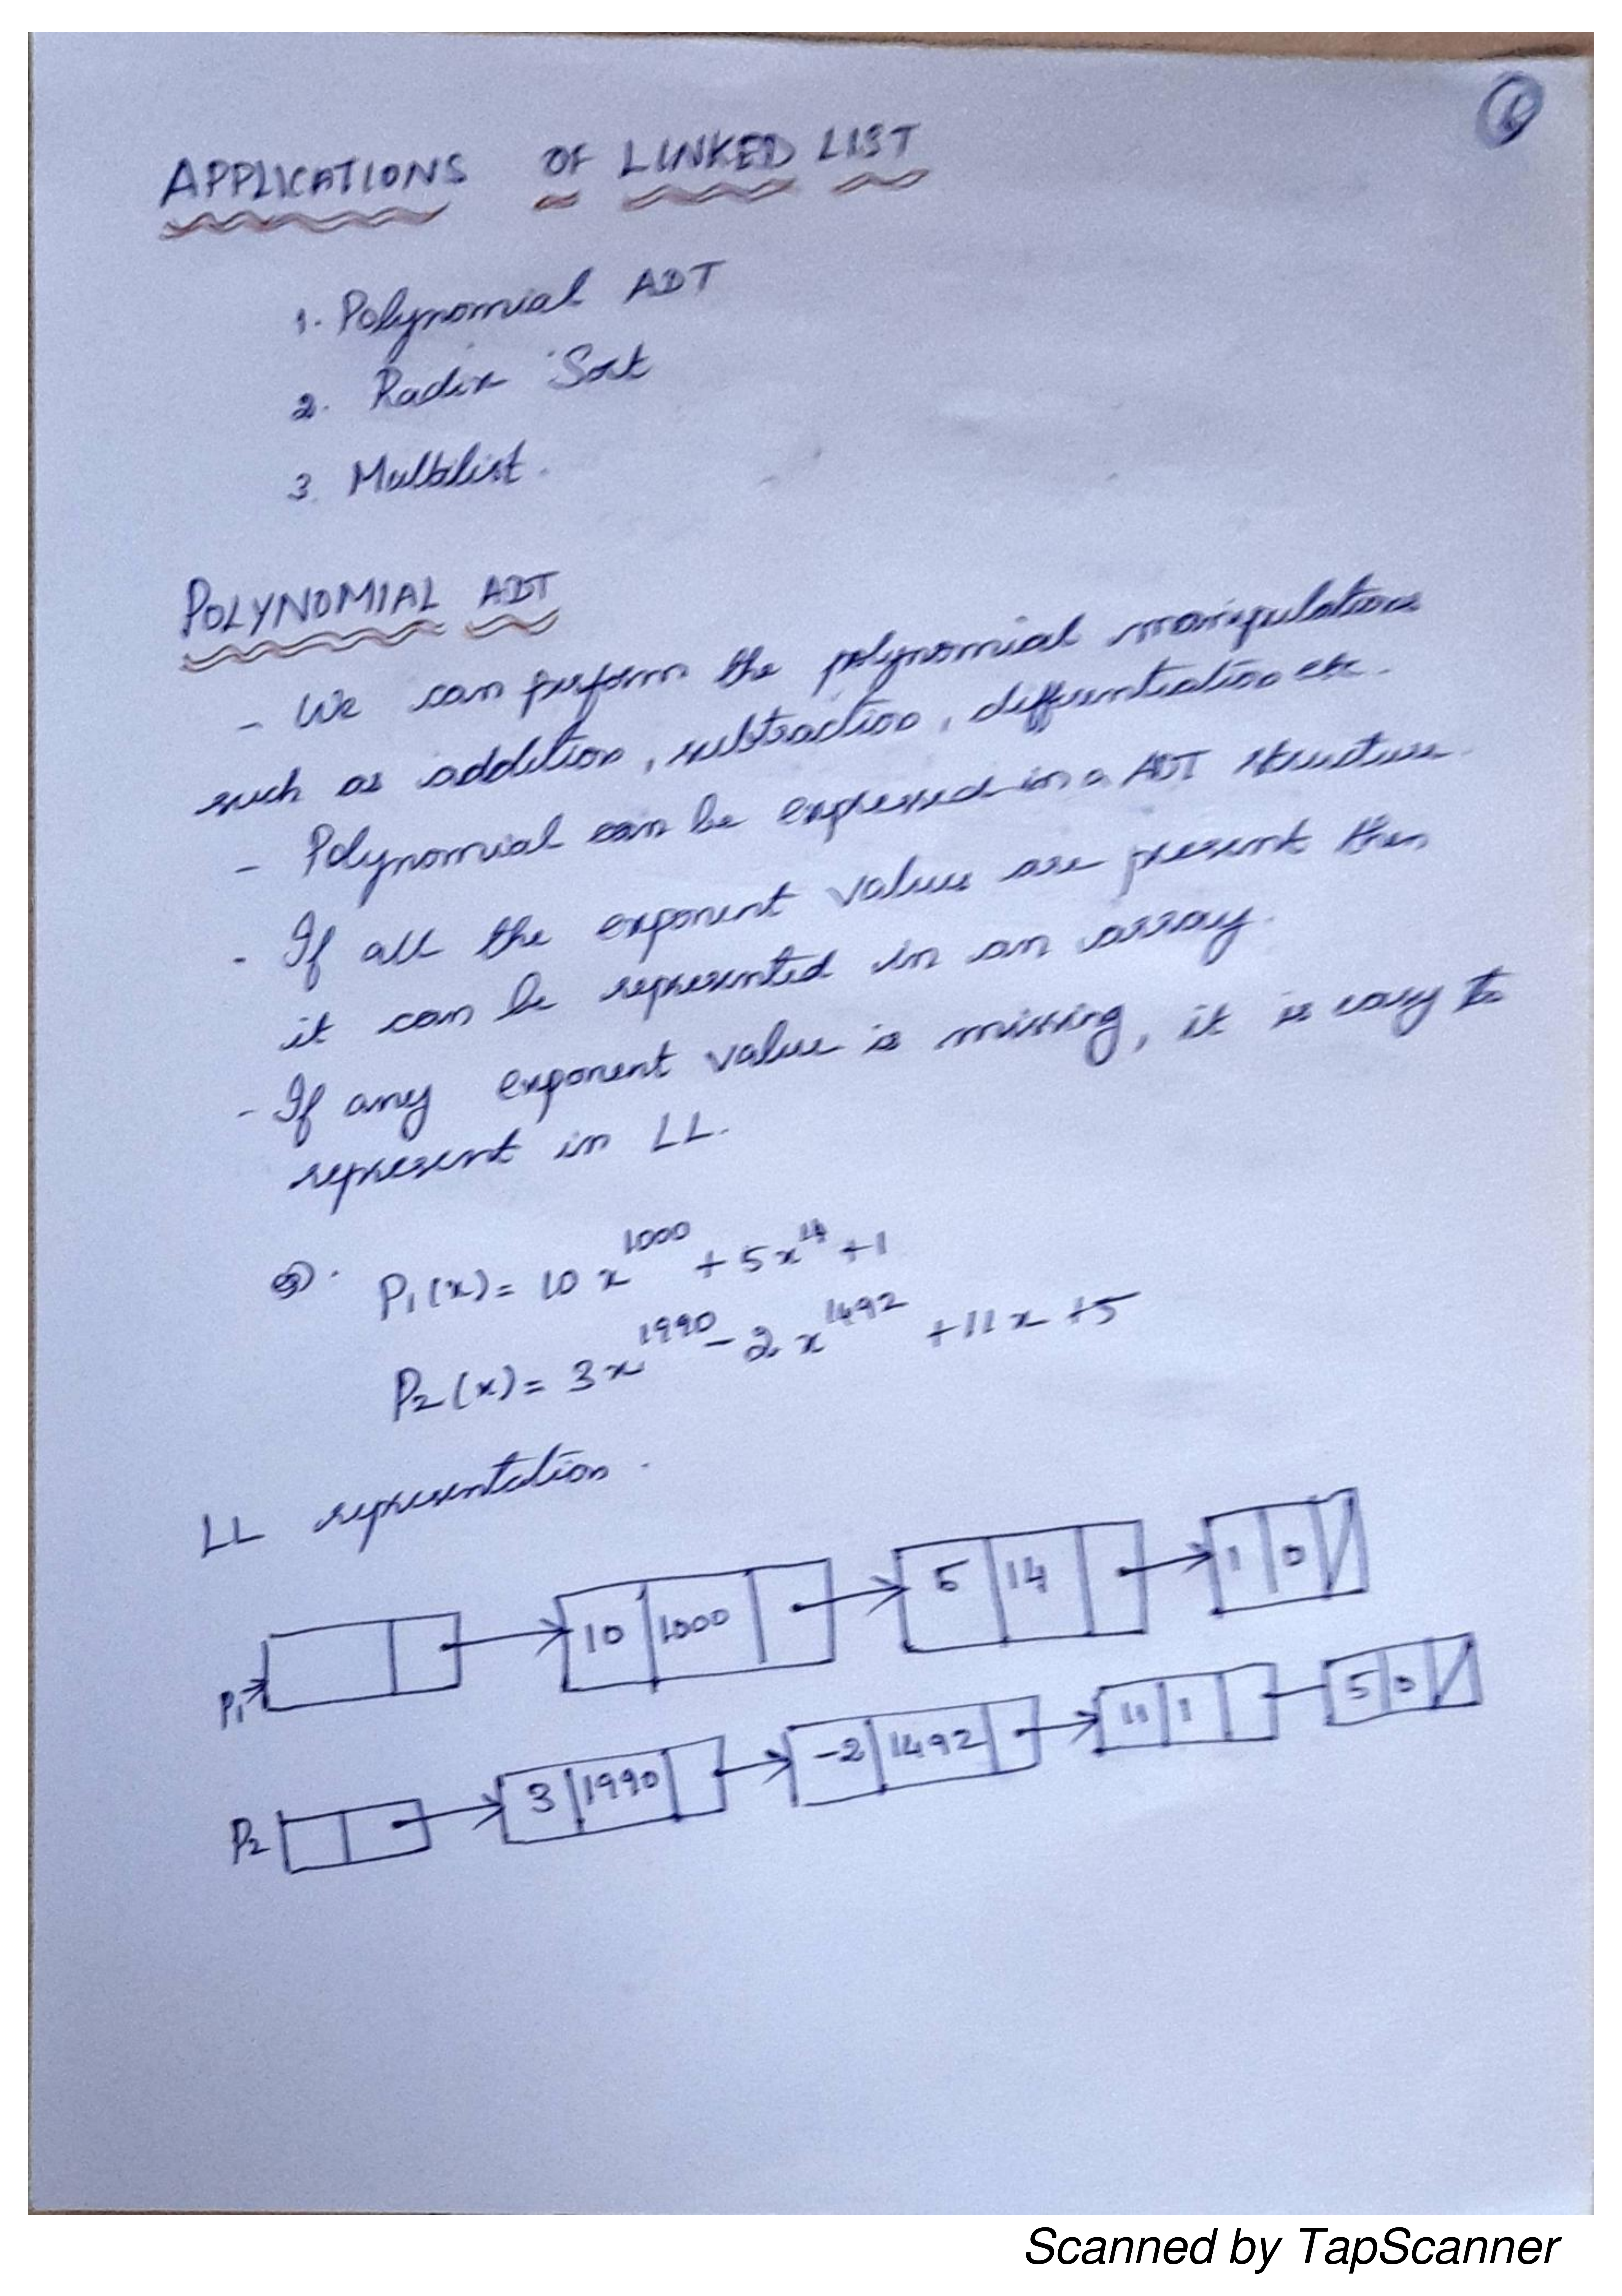 APPLICATIONS OF LINKED LIST
1. Polynomial ADT
2. Radix Sort
3. Multilist.
POLYNOMIAL ADT
- We can perform the polynomial manipulations
such as addition, subtraction, differentiation etc.
- Polynomial can be expressed in a ADT structure.
- If all the exponent values are present then
it can be represented in an array.
- If any exponent value is missing, it is easy to
represent in LL.
eg. P₁(x) = 10x¹⁰⁰⁰ + 5x¹⁴ + 1
P₂(x) = 3x¹⁹⁹⁰ - 2x¹⁴⁹² + 11x + 5
LL representation.
P₁ 10 1000 5 14 1 0
P₂ 3 1990 -2 1492 11 1 5 0
Scanned by TapScanner